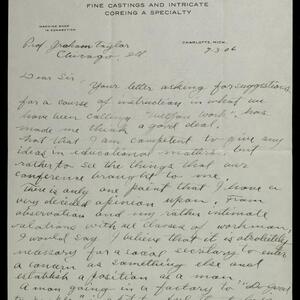 FINE CASTINGS AND INTRICATE
COREING A SPECIALTY
MACHINE SHOP
IN CONNECTION
CHARLOTTE, MICH.
Prof Graham Taylor
Chicago, Ill
9-3.06
Dear Sir, Your letter asking for suggestions
for a course of instruction in what we
have been calling "Welfare Work", has
made me think a good deal.
Not that I am competent to give any
ideas in educational matters, but
rather to see the things that our
conference brought to me.
There is only one point that I have a
very decided opinion upon. From
observation and my rather intimate
relations with all classes of workmen,
I would say I believe that it is absolutely
necessary for a social secretary to enter
a concern as something else and
establish a position as a man
A man going in a factory to "do good